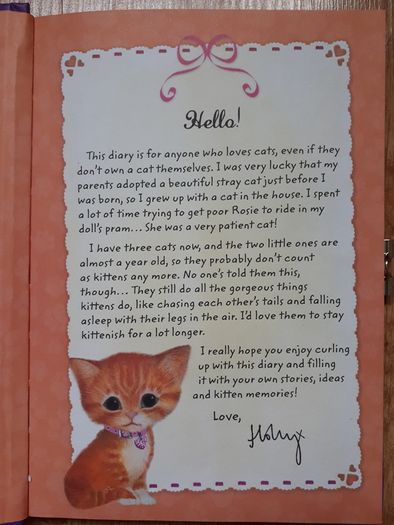 Hello!
This diary is for anyone who loves cats, even if they
don't own a cat themselves. I was very lucky that my
parents adopted a beautiful stray cat just before I
was born, so I grew up with a cat in the house. I spent
a lot of time trying to get poor Rosie to ride in my
doll's pram... She was a very patient cat!
I have three cats now, and the two little ones are
almost a year old, so they probably don't count
as kittens any more. No one's told them this,
though... They still do all the gorgeous things
kittens do, like chasing each other's tails and falling
asleep with their legs in the air. I'd love them to stay
kittenish for a lot longer.
I really hope you enjoy curling
up with this diary and filling
it with your own stories, ideas
and kitten memories!
Love,
Holly x